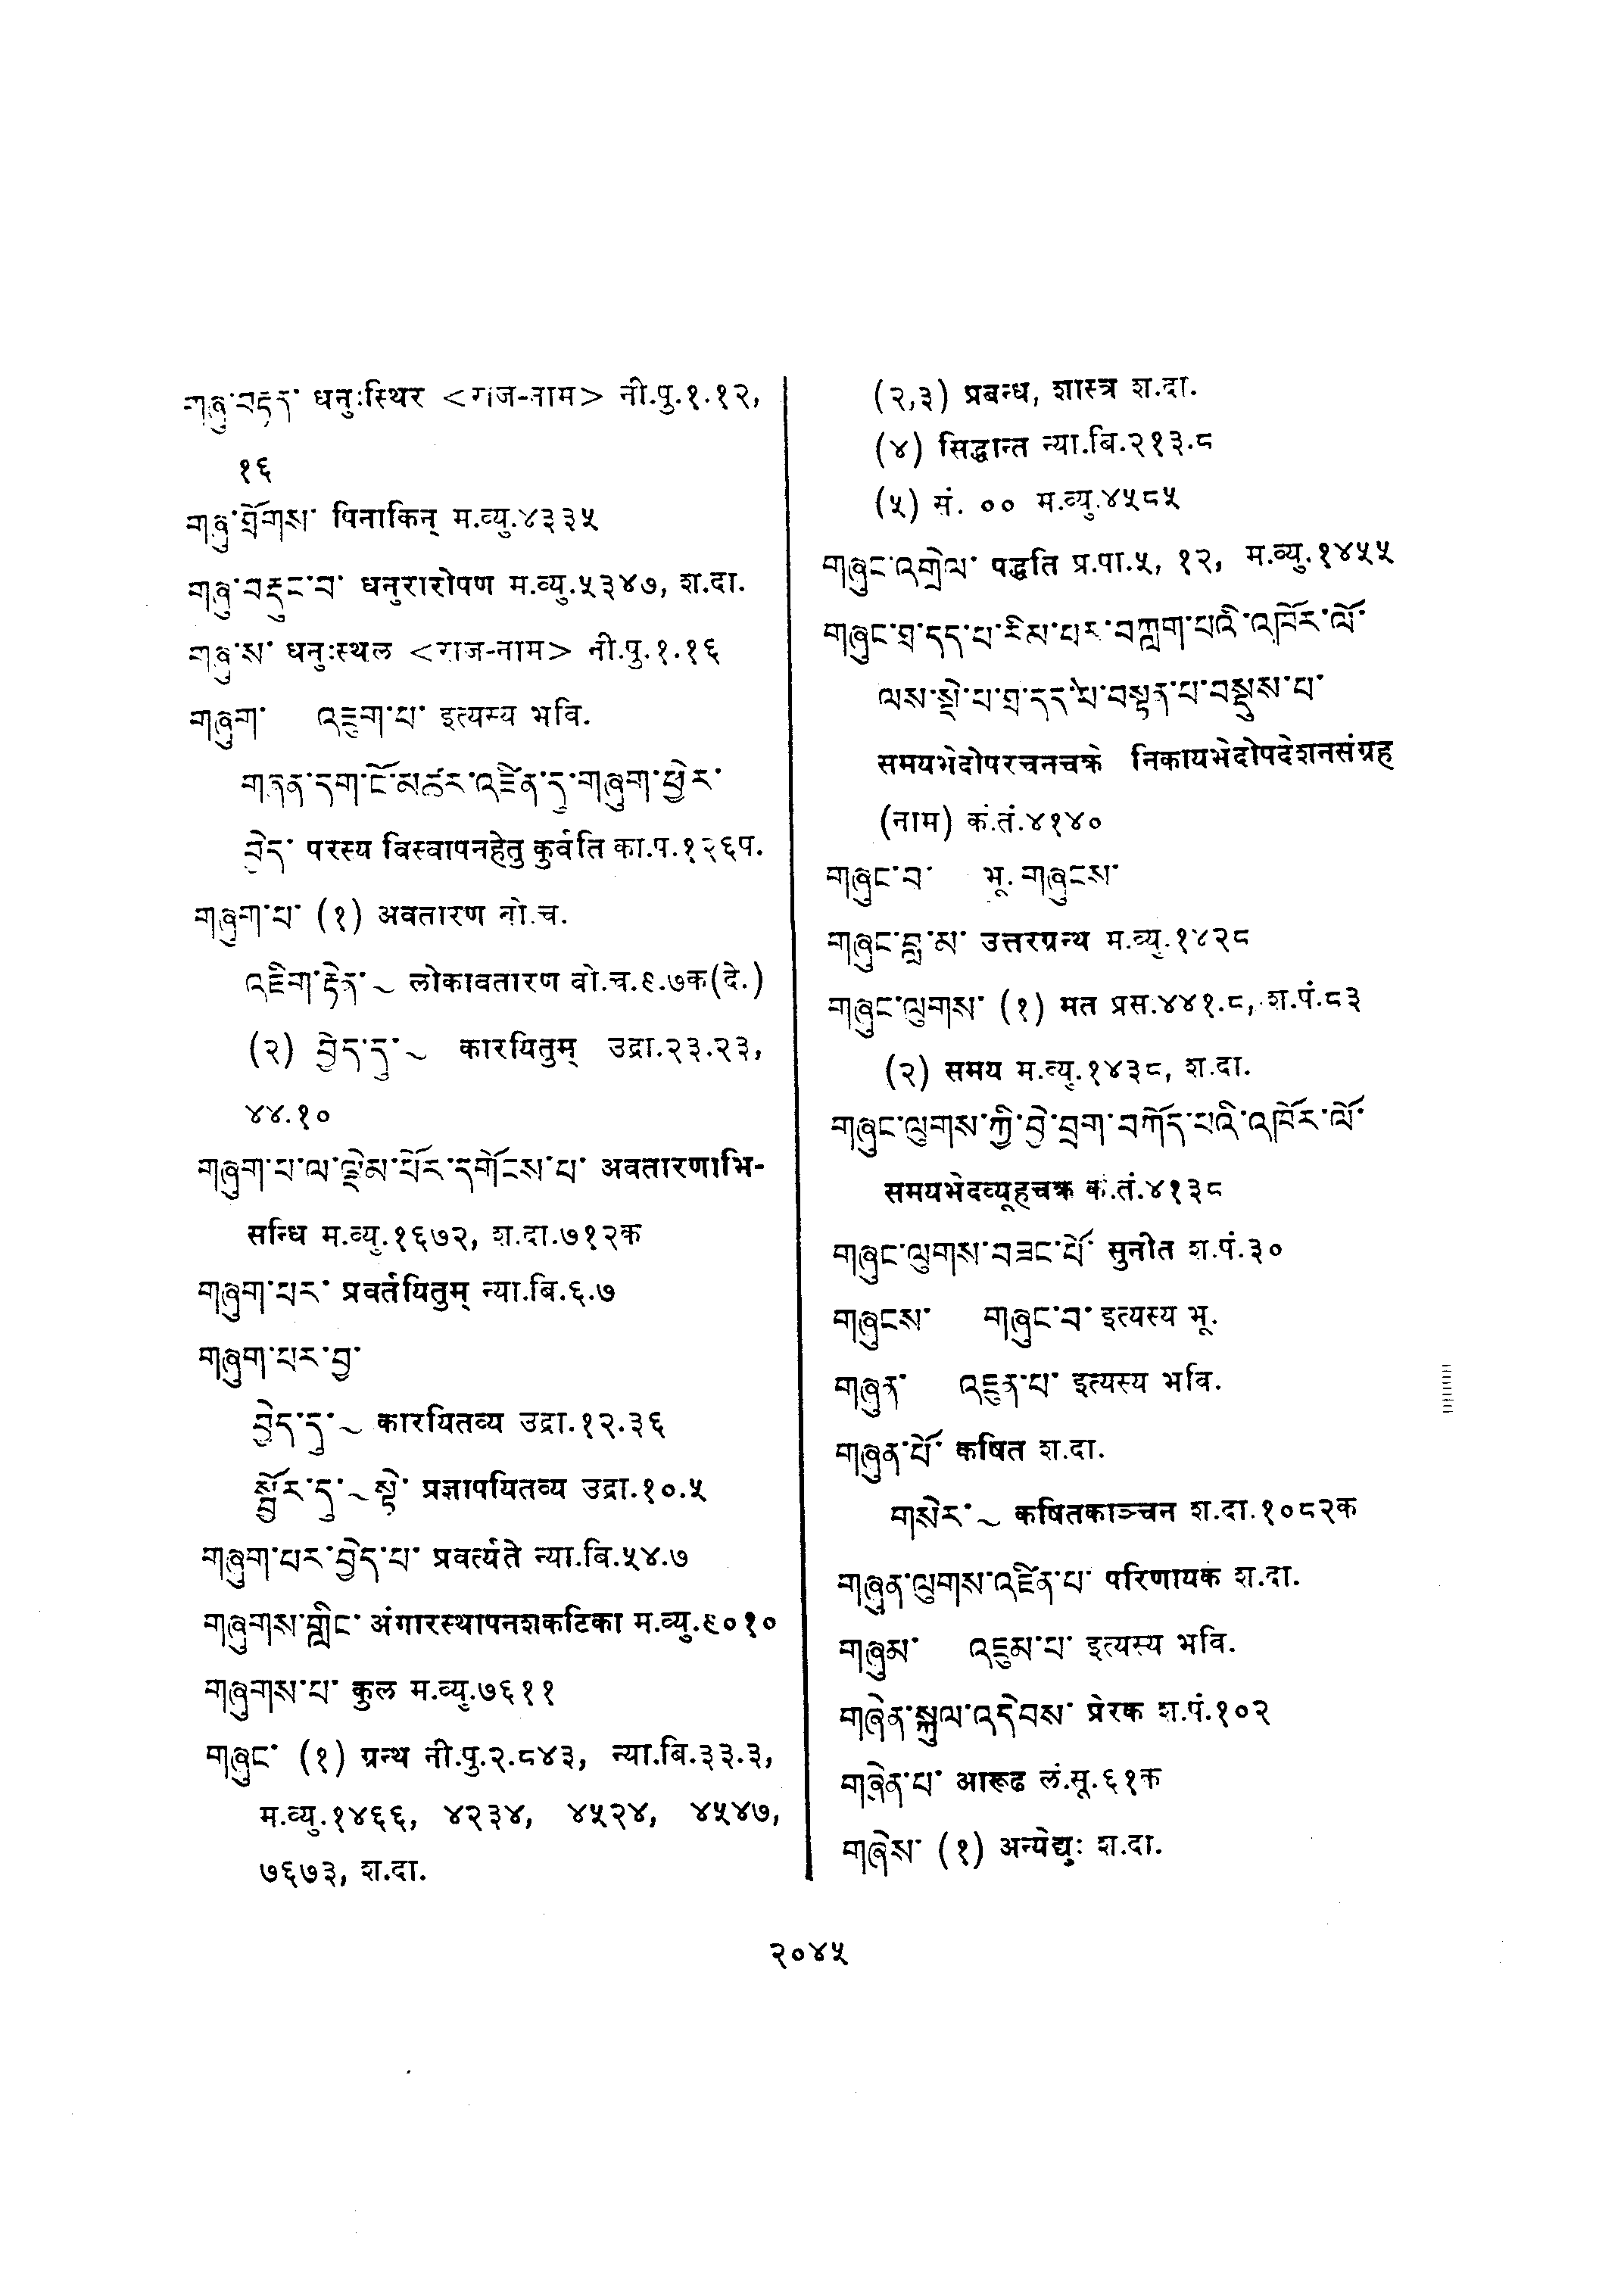 གཞུ་བརྟན་ धनुःस्थिर <राज-नाम> नी.पु.१.१२,
१६
གཞུ་ཐོགས་ पिनाकिन् म.व्यु.४३३५
གཞུ་བརྡུང་བ་ धनुरारोपण म.व्यु.५३४७, श.दा.
གཞུ་ས་ धनुःस्थल <राज-नाम> नी.पु.१.१६
གཞུག་ འཇུག་པ་ इत्यस्य भवि.
གཞན་དག་ངོ་མཚར་འཛིན་དུ་གཞུག་ཕྱིར་
བྱེད་ परस्य विस्वापनहेतु कुर्वति का.प.१२६प.
གཞུག་པ་ (१) अवतारण बो.च.
འཇིག་རྟེན་~ लोकावतारण बो.च.९.७क(दे.)
(२) བྱེད་དུ་~ कारयितुम् उद्रा.२३.२३,
४४.१०
གཞུག་པ་ལ་ལྡེམ་པོར་དགོངས་པ་ अवतारणाभि-
सन्धि म.व्यु.१६७२, श.दा.७१२क
གཞུག་པར་ प्रवर्तयितुम् न्या.बि.६.७
གཞུག་པར་བྱ་
བྱེད་དུ་~ कारयितव्य उद्रा.१२.३६
སྦྱོར་དུ་~སྟེ་ प्रज्ञापयितव्य उद्रा.१०.५
གཞུག་པར་བྱེད་པ་ प्रवर्त्यते न्या.बि.५४.७
གཞུགས་གླིང་ अंगारस्थापनशकटिका म.व्यु.९०१०
གཞུགས་པ་ कुल म.व्यु.७६११
གཞུང་ (१) ग्रन्थ नी.पु.२.८४३, न्या.बि.३३.३,
म.व्यु.१४६६, ४२३४, ४५२४, ४५४७,
७६७३, श.दा.
(२,३) प्रबन्ध, शास्त्र श.दा.
(४) सिद्धान्त न्या.बि.२१३.८
(५) सं. ०० म.व्यु.४५८५
གཞུང་འགྲེལ་ पद्धति प्र.पा.५, १२, म.व्यु.१४५५
གཞུང་ཐ་དད་པ་རིམ་པར་བཀླག་པའི་འཁོར་ལོ་
ལས་སྡེ་པ་ཐ་དད་པ་བསྟན་པ་བསྡུས་པ་
समयभेदोपरचनचक्रे निकायभेदोपदेशनसंग्रह
(नाम) कं.तं.४१४०
གཞུང་བ་ भू. གཞུངས་
གཞུང་བླ་མ་ उत्तरग्रन्थ म.व्यु.१४२८
གཞུང་ལུགས་ (१) मत प्रस.४४१.८, श.पं.८३
(२) समय म.व्यु.१४३८, श.दा.
གཞུང་ལུགས་ཀྱི་བྱེ་བྲག་བཀོད་པའི་འཁོར་ལོ་
समयभेदव्यूहचक्र कं.तं.४१३८
གཞུང་ལུགས་བཟང་པོ་ सुनीत श.पं.३०
གཞུངས་ གཞུང་བ་ इत्यस्य भू.
གཞུན་ འཇུན་པ་ इत्यस्य भवि.
གཞུན་པོ་ कषित श.दा.
གསེར་~ कषितकाञ्चन श.दा.१०८२क
གཞུན་ལུགས་འཛིན་པ་ परिणायक श.दा.
གཞུམ་ འཇུམ་པ་ इत्यस्य भवि.
གཞེན་སྐུལ་འདེབས་ प्रेरक श.पं.१०२
གཞེན་པ་ आरूढ लं.सू.६१क
གཞེས་ (१) अन्येद्युः श.दा.
२०४५